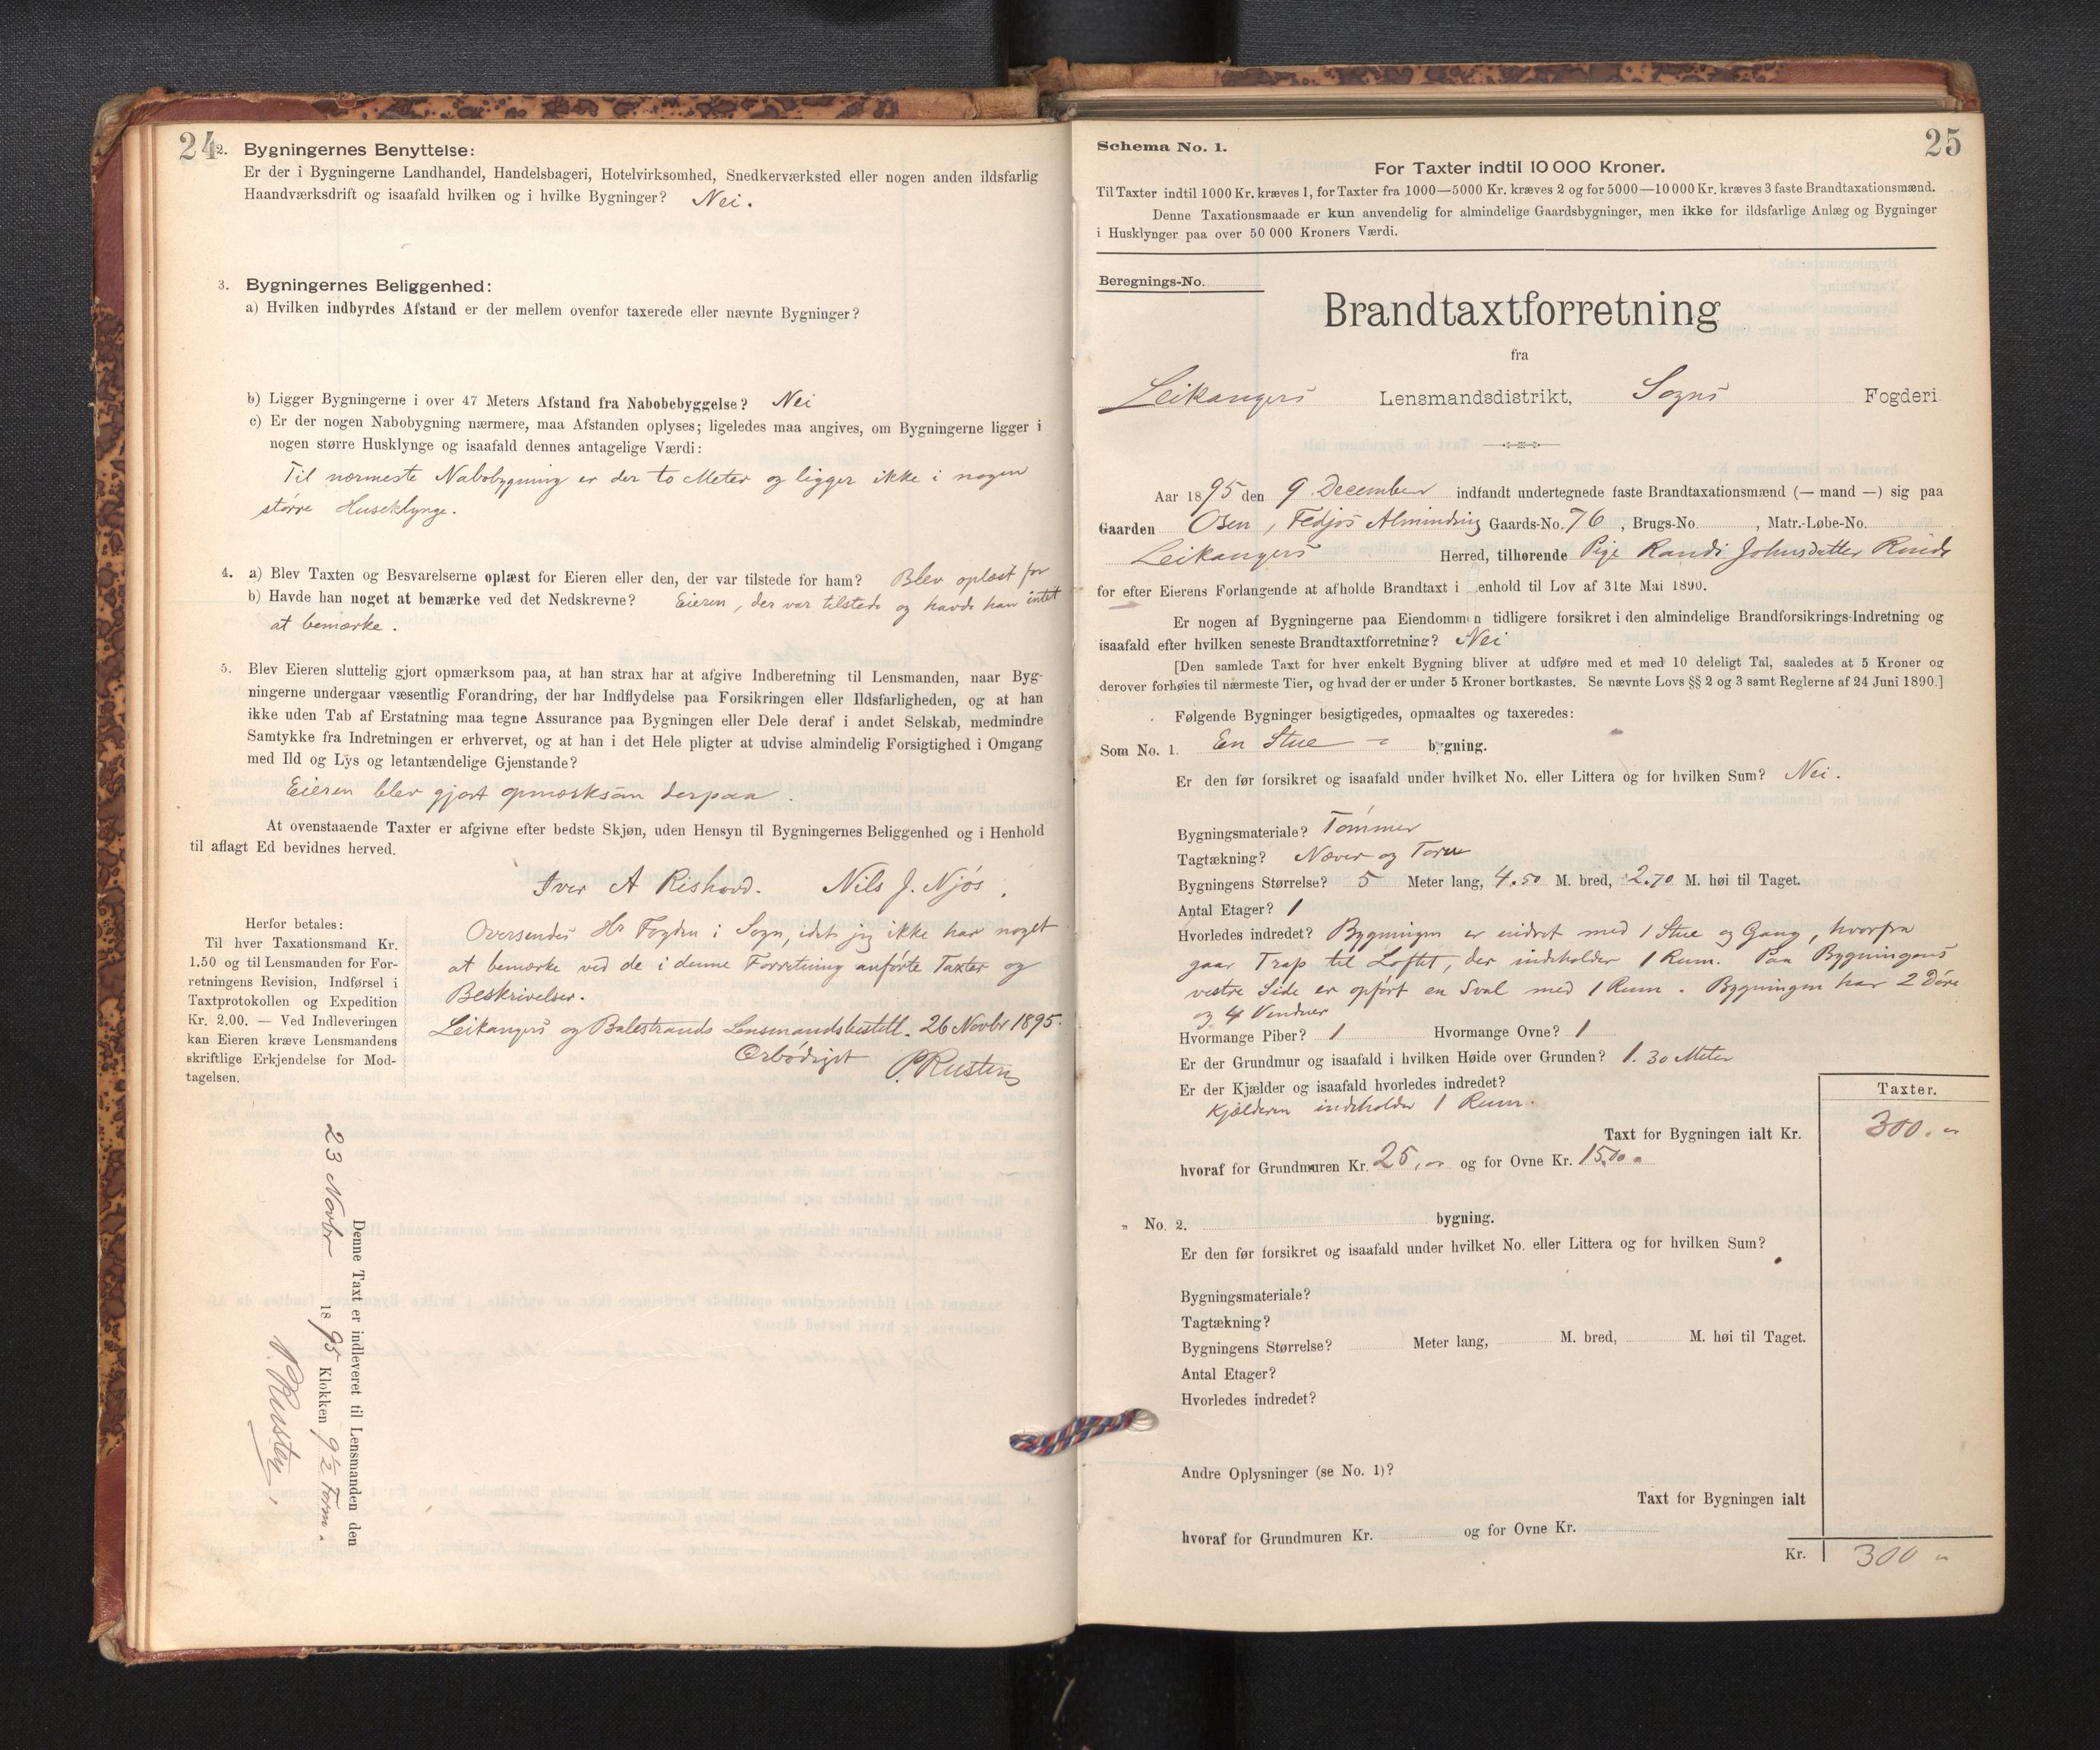 24
2. Bygningernes Benyttelse:
Er der i Bygningerne Landhandel, Handelsbageri, Hotelvirksomhed, Snedkerværksted eller nogen anden ildsfarlig
Haandværksdrift og isaafald hvilken og i hvilke Bygninger? Nei.
3. Bygningernes Beliggenhed:
a) Hvilken indbyrdes Afstand er der mellem ovenfor taxerede eller nævnte Bygninger?
b) Ligger Bygningerne i over 47 Meters Afstand fra Nabobebyggelse? Nei
c) Er der nogen Nabobygning nærmere, maa Afstanden oplyses; ligeledes maa angives, om Bygningerne ligger i
nogen større Husklynge og isaafald dennes antagelige Værdi:
Til nærmeste Nabobygning er der to Meter og ligger ikke i nogen
større Huseklynge.
4. a) Blev Taxten og Besvarelserne oplæst for Eieren eller den, der var tilstede for ham? Blev oplæst for
b) Havde han noget at bemærke ved det Nedskrevne? Eieren, der var tilstede og havde han intet
at bemærke.
5. Blev Eieren sluttelig gjort opmærksom paa, at han strax har at afgive Indberetning til Lensmanden, naar Byg-
ningerne undergaar væsentlig Forandring, der har Indflydelse paa Forsikringen eller Ildsfarligheden, og at han
ikke uden Tab af Erstatning maa tegne Assurance paa Bygningen eller Dele deraf i andet Selskab, medmindre
Samtykke fra Indretningen er erhvervet, og at han i det Hele pligter at udvise almindelig Forsigtighed i Omgang
med Ild og Lys og letantændelige Gjenstande?
Eieren blev gjort opmærksom derpaa.
At ovenstaaende Taxter er afgivne efter bedste Skjøn, uden Hensyn til Bygningernes Beliggenhed og i Henhold
til aflagt Ed bevidnes herved.
Iver A Rishovd. Nils J. Njøs.
Herfor betales:
Til hver Taxationsmand Kr.
1.50 og til Lensmanden for For-
retningens Revision, Indførsel i
Taxtprotokollen og Expedition
Kr. 2.00. — Ved Indleveringen
kan Eieren kræve Lensmandens
skriftlige Erkjendelse for Mod-
tagelsen.
Oversendes Hr Fogden i Sogn, idet jeg ikke har noget
at bemærke ved de i denne Forretning anførte Taxter og
Beskrivelser.
Leikangers og Balestrands Lensmandsbestill. 26 Novbr 1895.
Ærbødigst
P. Rusten
Denne Taxt er indleveret til Lensmanden den
23 Novbr 1895 Klokken 9½ Form.
P. Rusten.
25
Schema No. 1.
For Taxter indtil 10 000 Kroner.
Til Taxter indtil 1000 Kr. kræves 1, for Taxter fra 1000—5000 Kr. kræves 2 og for 5000—10 000 Kr. kræves 3 faste Brandtaxationsmænd.
Denne Taxationsmaade er kun anvendelig for almindelige Gaardsbygninger, men ikke for ildsfarlige Anlæg og Bygninger
i Husklynger paa over 50 000 Kroners Værdi.
Beregnings-No.
Brandtaxtforretning
fra
Leikangers Lensmandsdistrikt, Sogns Fogderi
Aar 1895 den 9 December indfandt undertegnede faste Brandtaxationsmænd (— mand —) sig paa
Gaarden Osen, Fedjos Almindnig Gaards-No. 76, Brugs-No. , Matr.-Løbe-No.
Leikangers Herred, tilhørende Pige Randi Johnsdatter Rinde
for efter Eierens Forlangende at afholde Brandtaxt i enhold til Lov af 31te Mai 1890.
Er nogen af Bygningerne paa Eiendommen tidligere forsikret i den almindelige Brandforsikrings-Indretning og
isaafald efter hvilken seneste Brandtaxtforretning? Nei
[Den samlede Taxt for hver enkelt Bygning bliver at udføre med et med 10 deleligt Tal, saaledes at 5 Kroner og
derover forhøies til nærmeste Tier, og hvad der er under 5 Kroner bortkastes. Se nævnte Lovs §§ 2 og 3 samt Reglerne af 24 Juni 1890.]
Følgende Bygninger besigtigedes, opmaaltes og taxeredes:
Som No. 1. En Stue - bygning.
Er den før forsikret og isaafald under hvilket No. eller Littera og for hvilken Sum? Nei.
Bygningsmateriale? Tømmer
Tagtækning? Næver og Torv
Bygningens Størrelse? 5 Meter lang, 4.50 M. bred, 2.70 M. høi til Taget.
Antal Etager? 1
Hvorledes indredet? Bygningen er indret med 1 Stue og Gang, hvorfra
gaar Trap til Loftet, der indeholder 1 Rum. Paa Bygningens
vestre Side er opført en Sval med 1 Rum. Bygningen har 2 Døre
og 4 Vinduer
Hvormange Piber? 1 Hvormange Ovne? 1
Er der Grundmur og isaafald i hvilken Høide over Grunden? 1.30 Meter
Er der Kjælder og isaafald hvorledes indredet?
Kjælderen indeholder 1 Rum.
Taxter.
Taxt for Bygningen ialt Kr. 300. "
hvoraf for Grundmuren Kr. 25, " og for Ovne Kr. 15,00
„ No. 2. bygning.
Er den før forsikret og isaafald under hvilket No. eller Littera og for hvilken Sum?
Bygningsmateriale?
Tagtækning?
Bygningens Størrelse? Meter lang, M. bred, M. høi til Taget.
Antal Etager?
Hvorledes indredet?
Andre Oplysninger (se No. 1)?
Taxt for Bygningen ialt
hvoraf for Grundmuren Kr. og for Ovne Kr.
Kr. 300 "